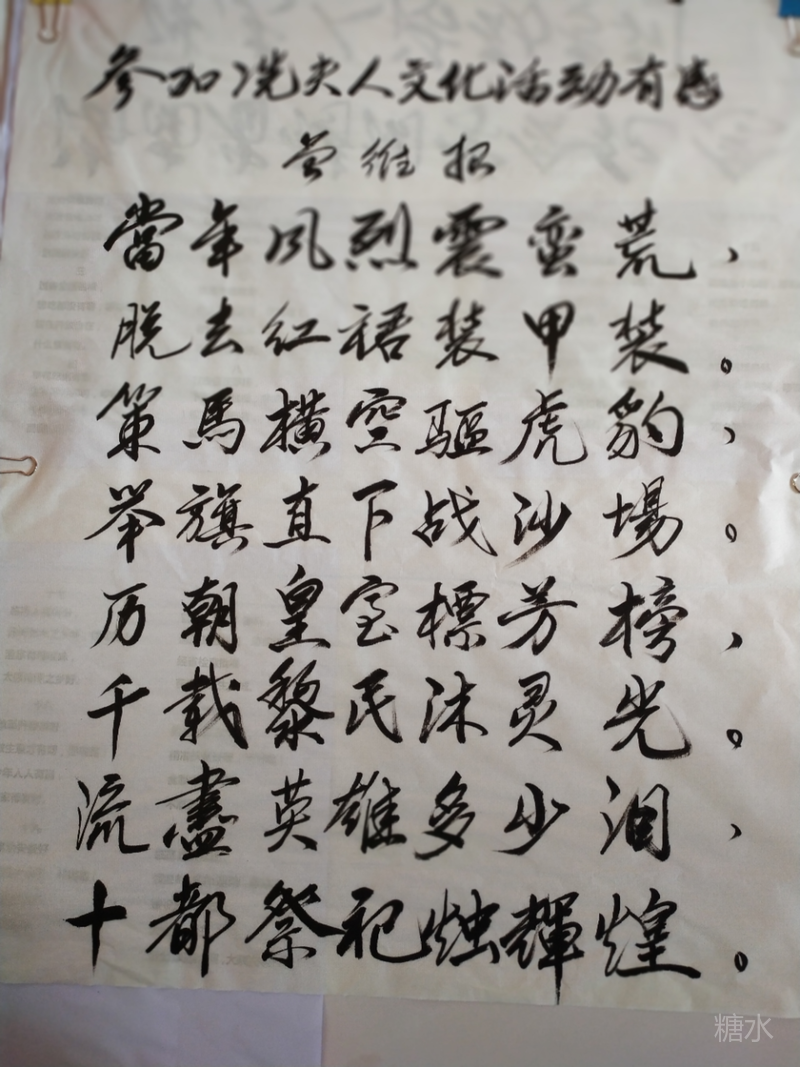 参加冼夫人文化活动有感
曾维招
當年风烈震蛮荒，
脱去红裙装甲装。
策馬橫空驱虎豹，
举旗直下战沙場。
历朝皇室標芳榜，
千载黎民沐灵光。
流盡英雄多少泪，
十都祭祀烛輝煌。
糖水